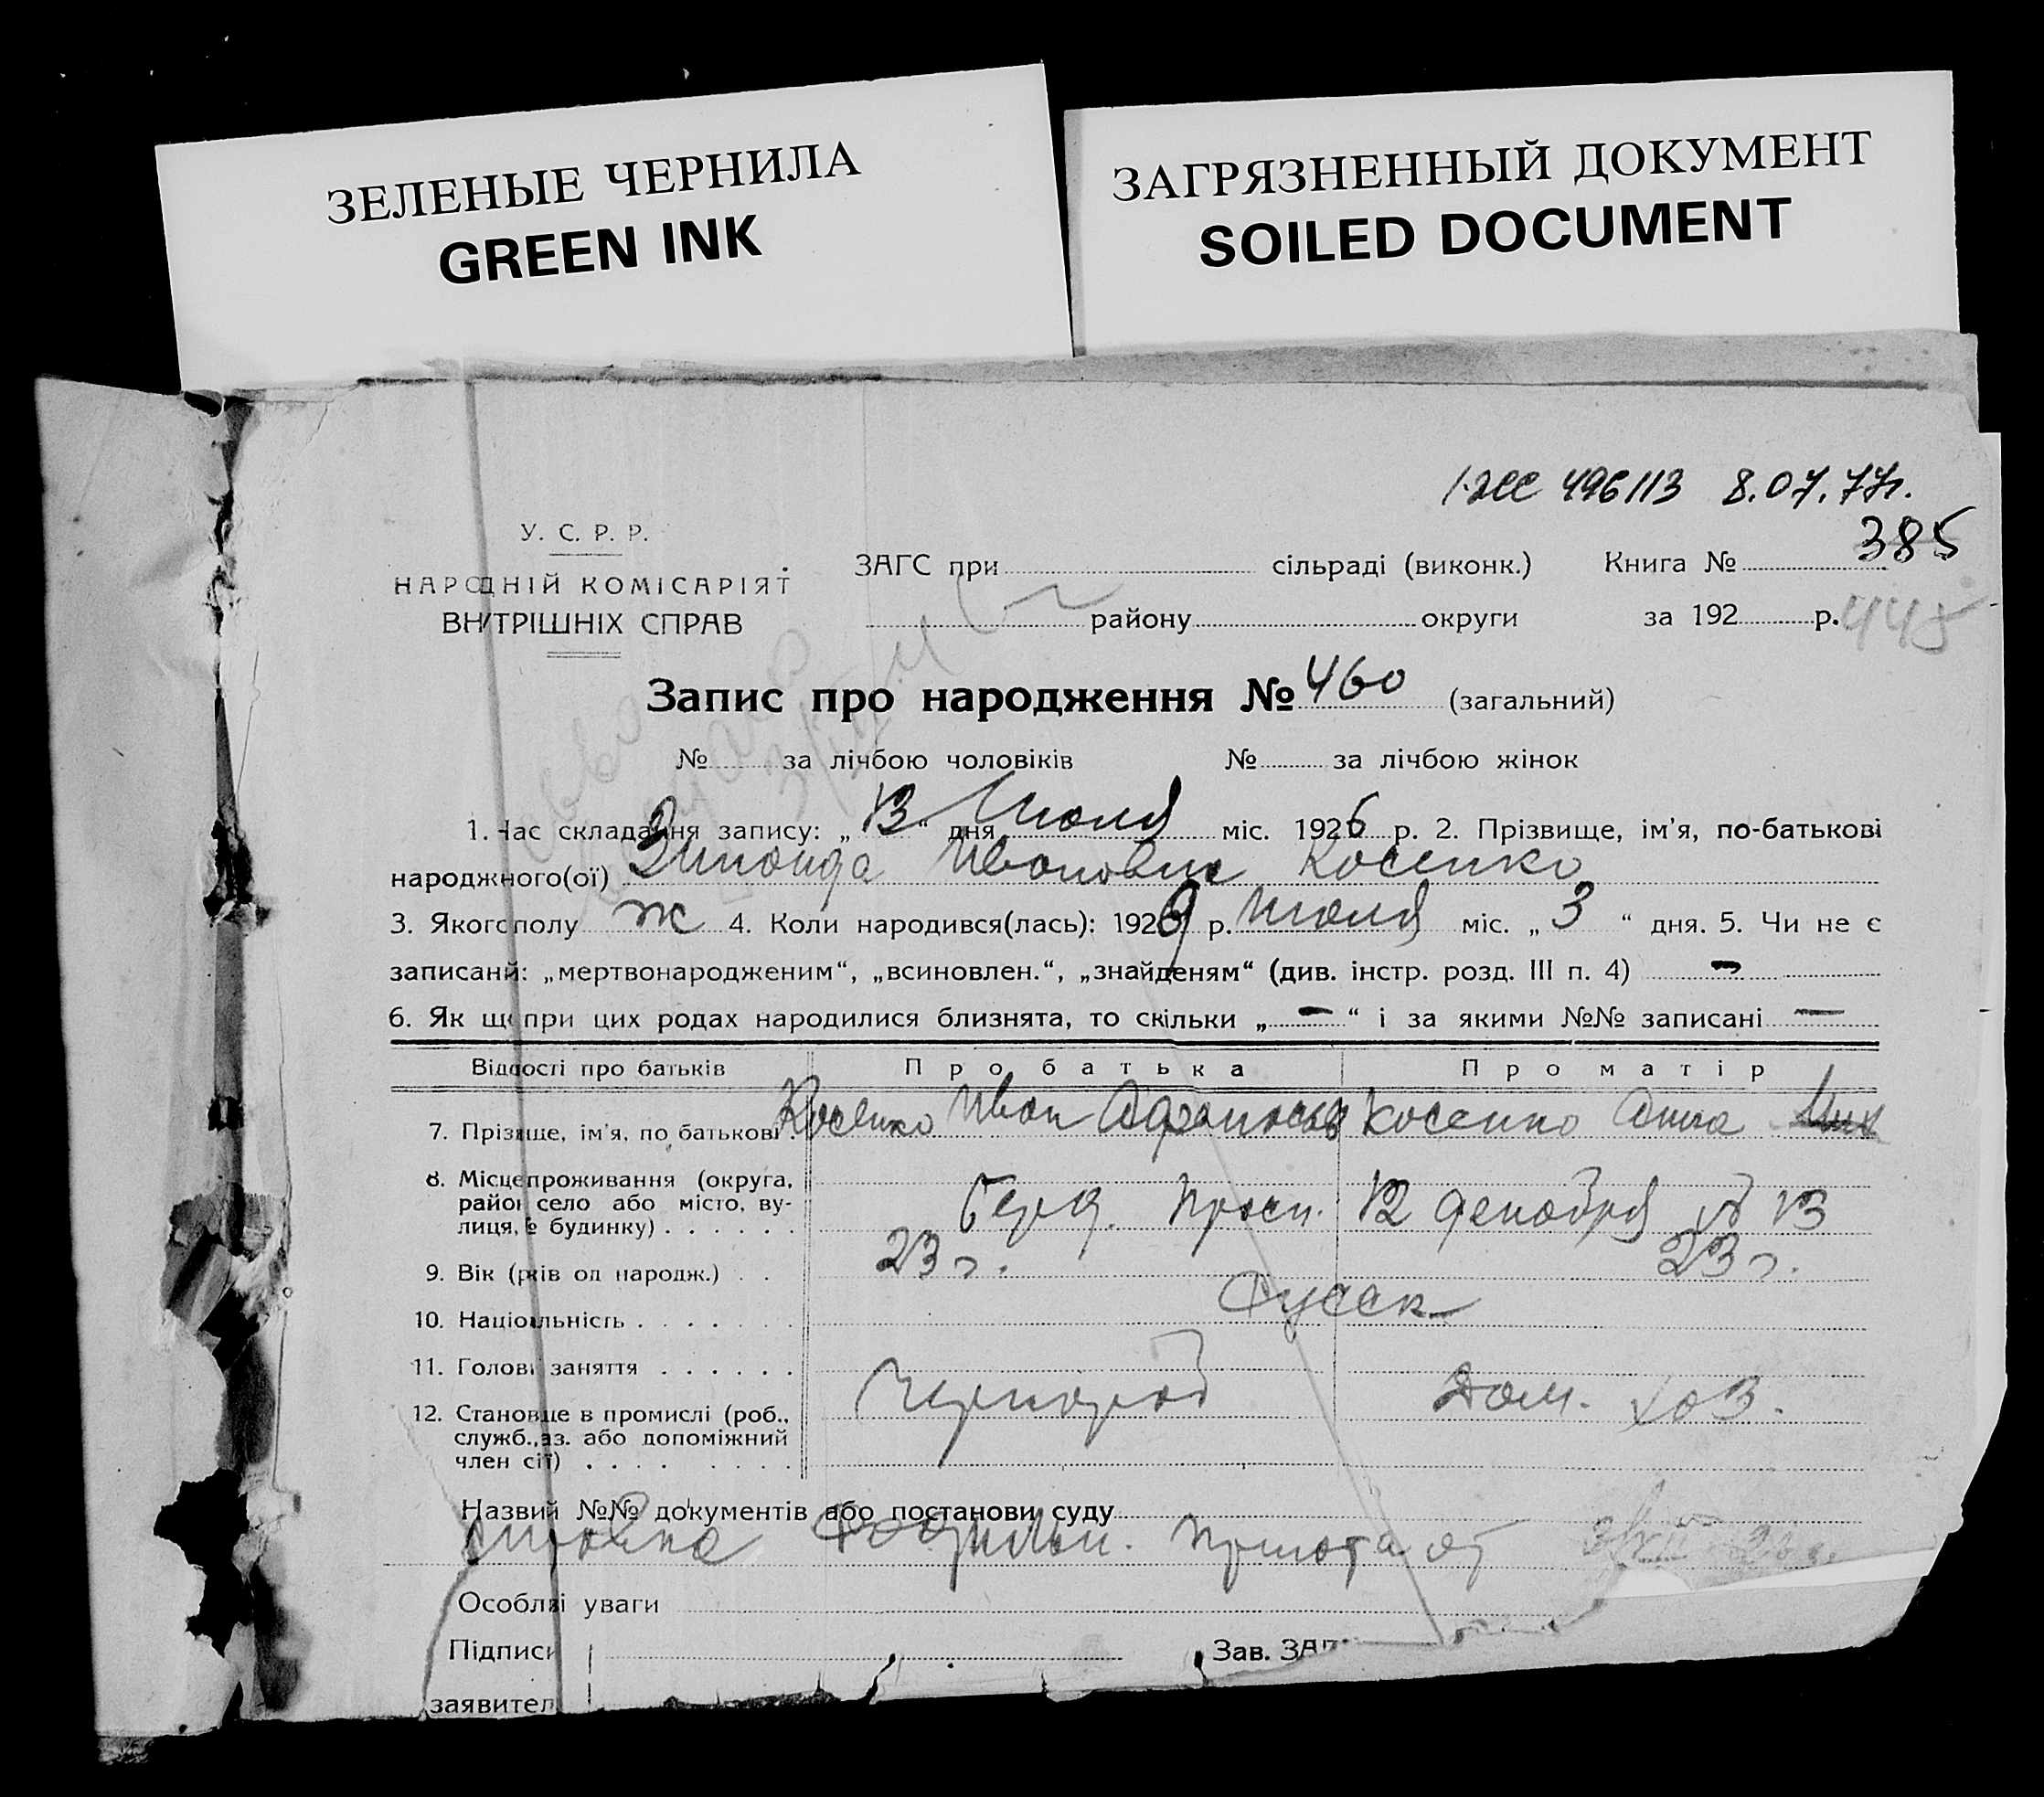 ЗЕЛЕНЫЕ ЧЕРНИЛА
GREEN INK
ЗАГРЯЗНЕННЫЙ ДОКУМЕНТ
SOILED DOCUMENT
496113 8.07.77г.
385
У. С. Р. Р.
НАРОДНІЙ КОМІСАРІЯТ
ВНУТРІШНІХ СПРАВ
ЗАГС при сільраді (виконк.) Книга №
району округи за 192 р. 445
Запис про народження № 460 (загальний)
№ за лічбою чоловіків № за лічбою жінок
1. Час складання запису: „ 13 “ дня Июля міс. 1926 р. 2. Прізвище, ім’я, по-батькові
народжного(ої) Зинаида Ивановна Косенко
3. Якого полу ж 4. Коли народився(лась): 192 р. Июля міс. „ 3 “ дня. 5. Чи не є
записаний: „мертвонародженим“, „всиновлен.“, „знайденям“ (див. інстр. розд. III п. 4) —
6. Як що при цих родах народилися близнята, то скільки „ — “ і за якими №№ записані —
Відомості про батьків Про батька Про матір
7. Прізвище, ім’я, по батькові . Косенко Иван Косенко Анна
8. Місцепроживання (округа,
район село або місто, ву-
лиця, № будинку) . . . . . . 12 декабря № 13
9. Вік (років од народж.) . . 23 г. 23 г.
10. Національність . . . . . . . Русск
11. Голові заняття . . . . . .
Чернораб Дом. хоз.
12. Становище в промислі (роб.,
служб., аз. або допоміжний
член сії) . . . . . . . .
Назви й №№ документів або постанови суду
Справка приюта от
Особливі уваги
Підписи Зав. ЗАГ
заявител